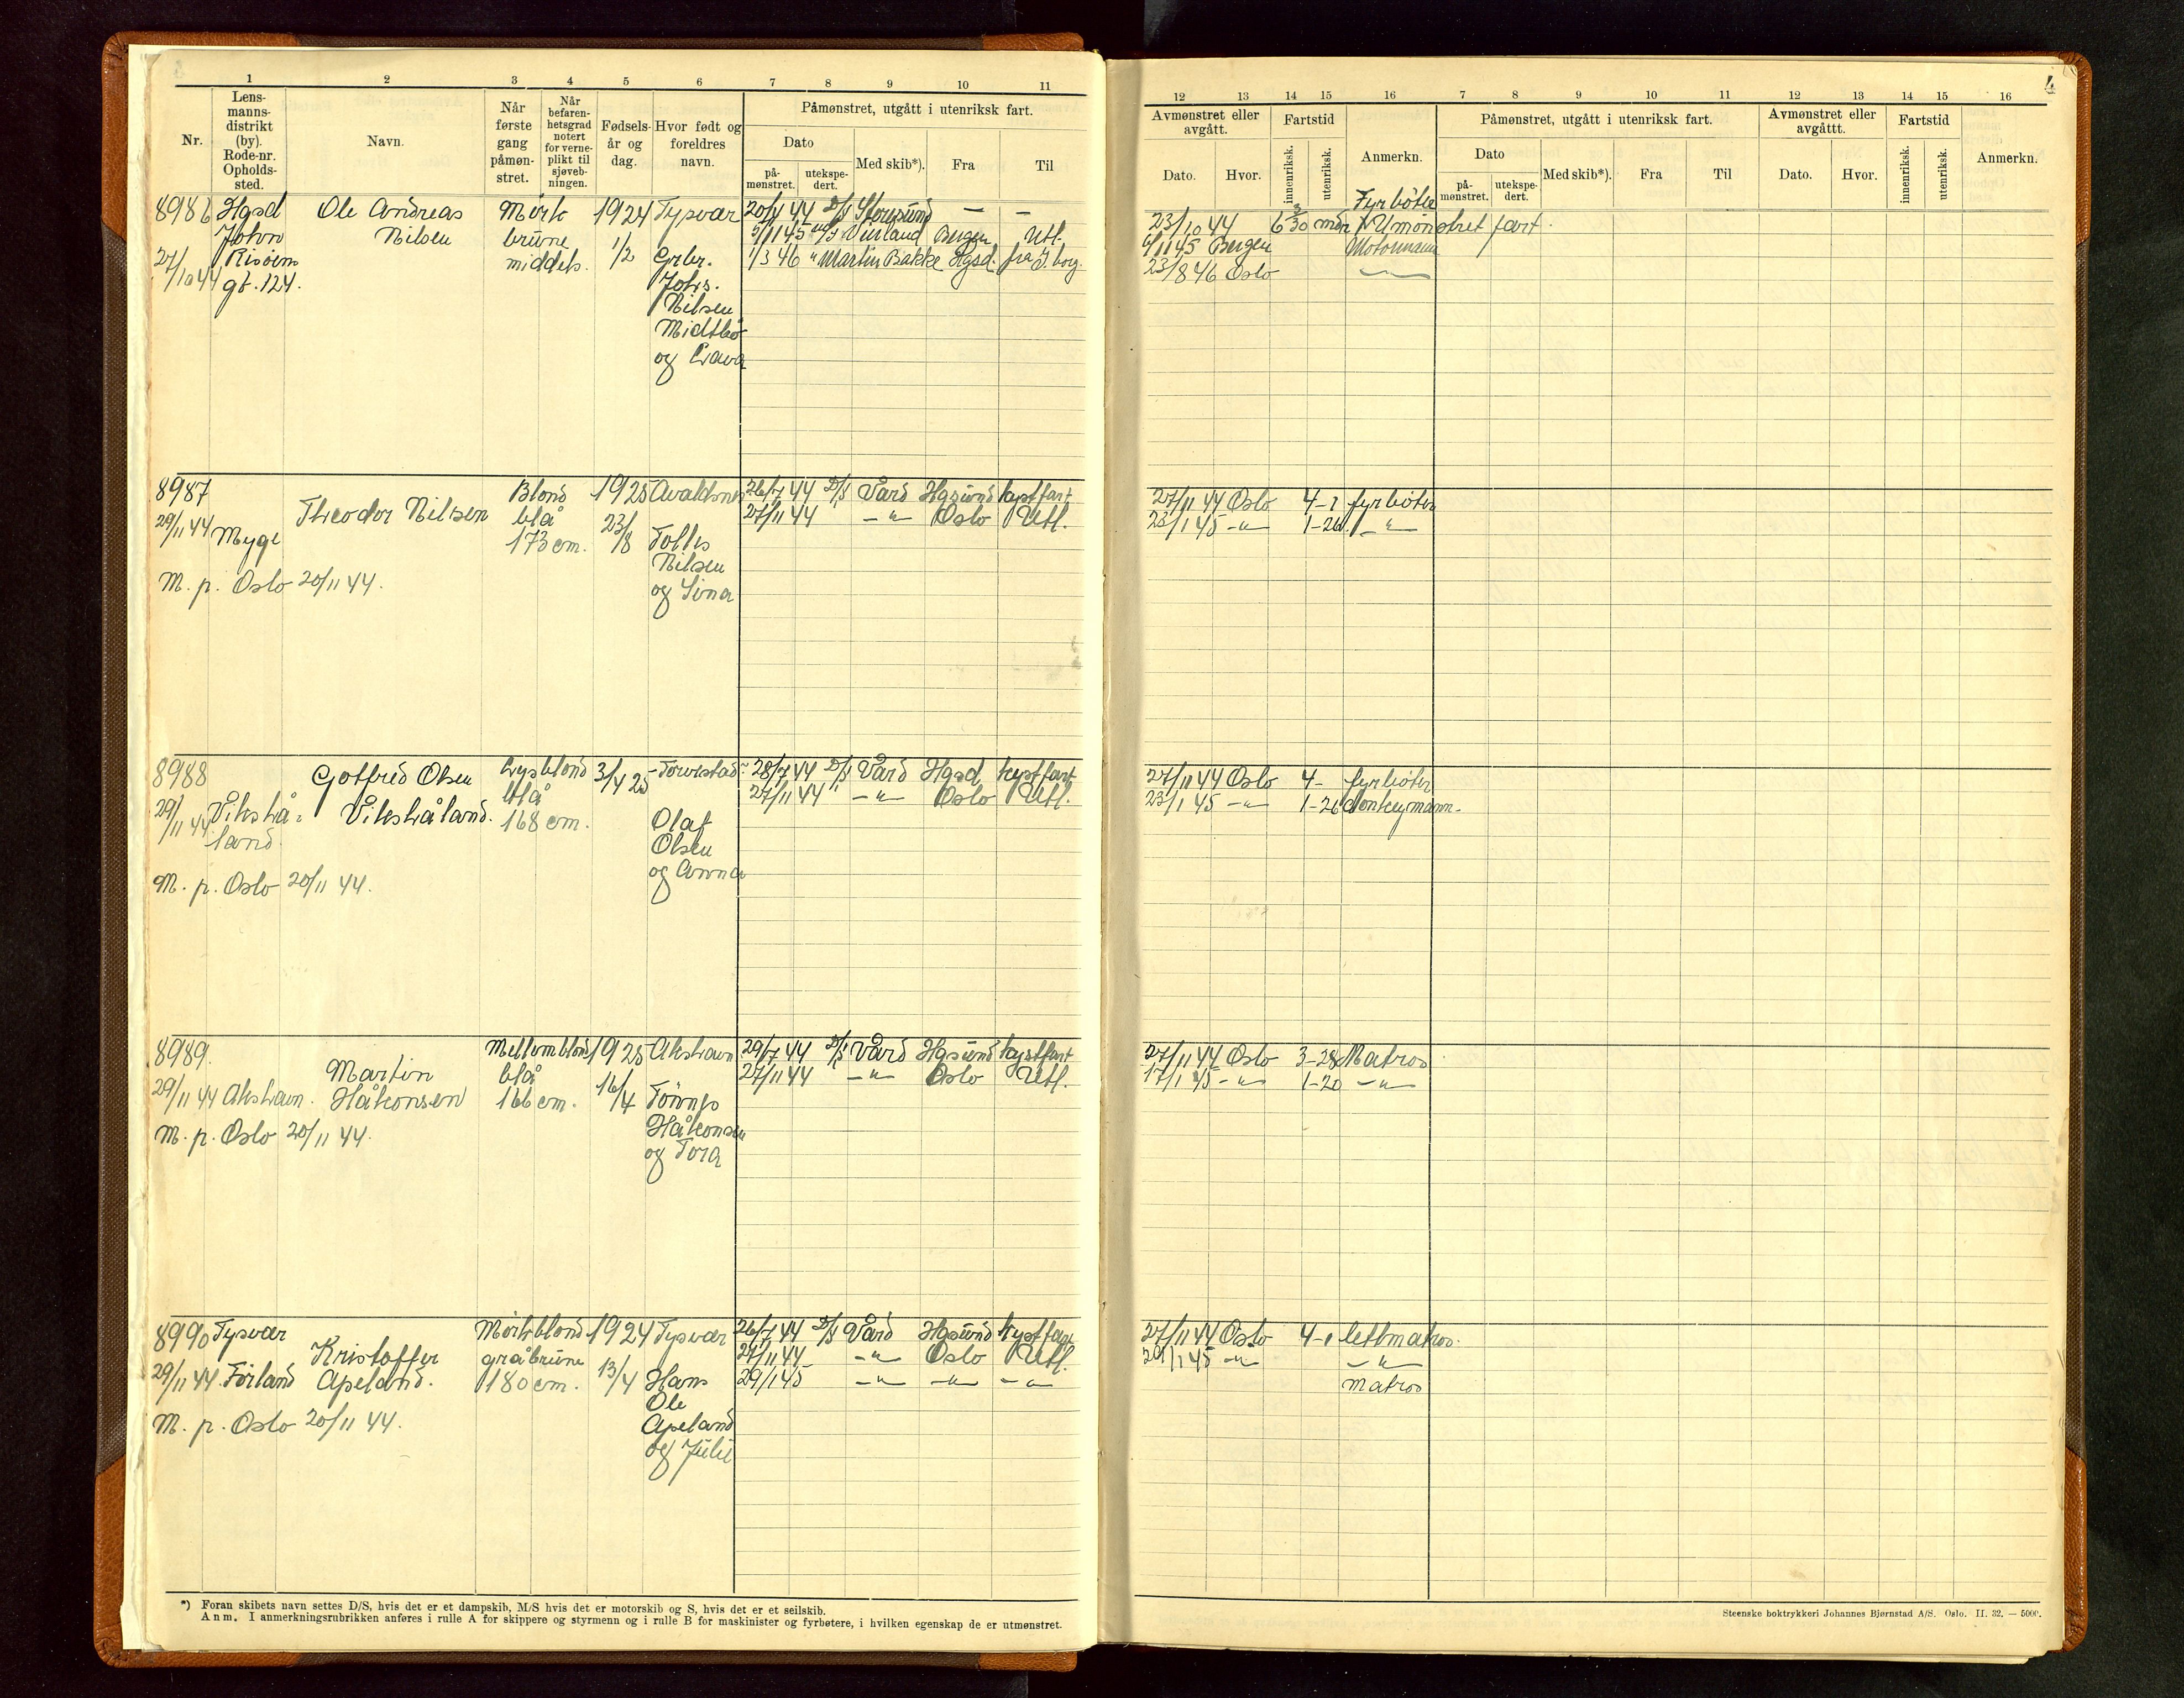 4
1 2 3 4 5 6 7 8 9 10 11
Nr.
Lens-
manns-
distrikt
(by).
Rode-nr.
Opholds-
sted.
Navn.
Når
første
gang
påmøn-
stret.
Når
befaren-
hetsgrad
notert
for verne-
plikt til
sjøveb-
ningen.
Fødsels-
år og
dag.
Hvor født og
foreldres
navn.
Påmønstret, utgått i utenriksk fart.
Dato
på-
mønstret.
utekspe-
dert.
Med skib*).
Fra
Til
12 13 14 15 16 7 8 9 10 11 12 13 14 15 16
Avmønstret eller
avgått.
Dato.
Hvor.
Fartstid
innenriksk.
utenriksk.
Anmerkn.
Påmønstret, utgått i utenriksk fart.
Dato
på-
mønstret.
utekspe-
dert.
Med skib*).
Fra
Til
Avmønstret eller
avgåttt.
Dato.
Hvor.
Fartstid
innenriksk.
utenriksk.
Anmerkn.
8986 Hgsd Ole Andreas Mörk 1924 Tysvær 20/4 44 D/S Storesund — —
John Nilsen brune 1/2 Grbr. 5/11 45 M/S Vierland Bergen Utl.
27/10 44 Risöens middels. Johs. 1/3 46 " Martin Bakke Hgsd. fra
gt. 124.
Nilsen
Midtbö
og
Fyrböter
23/10 44 6 3/30 mdr Umönstret fart.
6/11 45 Bergen Motormann
23/8 46 Oslo —
8987 Blond 1925 Avaldsnes 26/7 44 D/S Vård Hgsund kystfart
Theodor Nilsen blå 27/11 44 —"— Oslo Utl.
29/11 44 Myge 173 cm. 23/8 Tolles
Nilsen
M. p. Oslo 20/11 44. og Sina
27/11 44 Oslo 4-1 fyrböter
23/1 45 —"— 1-26 —"—
8988 Gotfred Olsen Lysblond 3/4 25 Torvestad 28/7 44 D/S Vård Hgsd kystfart
blå 27/11 44 —"— Oslo Utl.
29/11 44 Vikshå= Vikshåland. 168 cm. Olaf
land. Olsen
M. p. Oslo 20/11 44. og Anna
27/11 44 Oslo 4- fyrböter
23/1 45 —"— 1-26 donkeymann.
8989. Mellomblond 1925 Akshavn 29/7 44 D/S Vård Hgsund kystfart
Martin blå 27/11 44 —"— Oslo Utl.
29/11 44 Akshavn. Håkonsen 166 cm. 16/4 Tönnes
M. p. Oslo 20/11 44. Håkonsen
og Tora
27/11 44 Oslo 3-28 Matros
17/1 45 —"— 1-20 —"—
8990 Tysvær Mörkblond 1924 Tysvær 26/7 44 D/S Vård Hgsund kystfart
Kristoffer gråbrune 27/11 44 —"— Oslo Utl.
29/11 44. Förland Apeland. 180 cm. 13/4 Hans 29/1 45 —"— —"— —"—
Ole
M. p. Oslo 20/11 44. Apeland
og Julie
27/11 44 Oslo 4-1 lettmatros.
29/1 45 —"— —"—
Matros
*) Foran skibets navn settes D/S, hvis det er et dampskib, M/S hvis det er motorskib og S, hvis det er et seilskib.
Anm. I anmerkningsrubrikken anføres i rulle A for skippere og styrmenn og i rulle B for maskinister og fyrbøtere, i hvilken egenskap de er utmønstret.
Steenske boktrykkeri Johannes Bjørnstad A/S. Oslo. II. 32. — 5000.